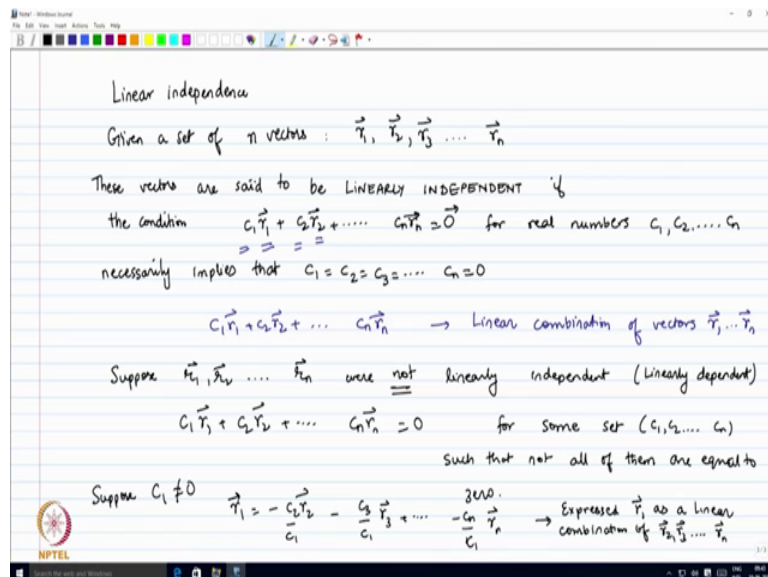 Note1 - Windows Journal
File Edit View Insert Actions Tools Help
Linear independence
Given a set of n vectors : r⃗₁, r⃗₂, r⃗₃ .... r⃗ₙ
These vectors are said to be LINEARLY INDEPENDENT if
the condition c₁r⃗₁ + c₂r⃗₂ + ..... cₙr⃗ₙ = 0⃗ for real numbers c₁, c₂, .... cₙ
necessarily implies that c₁ = c₂ = c₃ = .... cₙ = 0
c₁r⃗₁ + c₂r⃗₂ + ... cₙr⃗ₙ → Linear combination of vectors r⃗₁ ... r⃗ₙ
Suppose r⃗₁, r⃗₂ .... r⃗ₙ were not linearly independent (Linearly dependent)
c₁r⃗₁ + c₂r⃗₂ + .... cₙr⃗ₙ = 0 for some set (c₁, c₂ .... cₙ)
such that not all of them are equal to
zero.
Suppose c₁ ≠ 0 r⃗₁ = - c₂/c₁ r⃗₂ - c₃/c₁ r⃗₃ + .... -cₙ/c₁ r⃗ₙ → Expressed r⃗₁ as a linear
combination of r⃗₂, r⃗₃ .... r⃗ₙ
NPTEL
Search the web and Windows
ENG